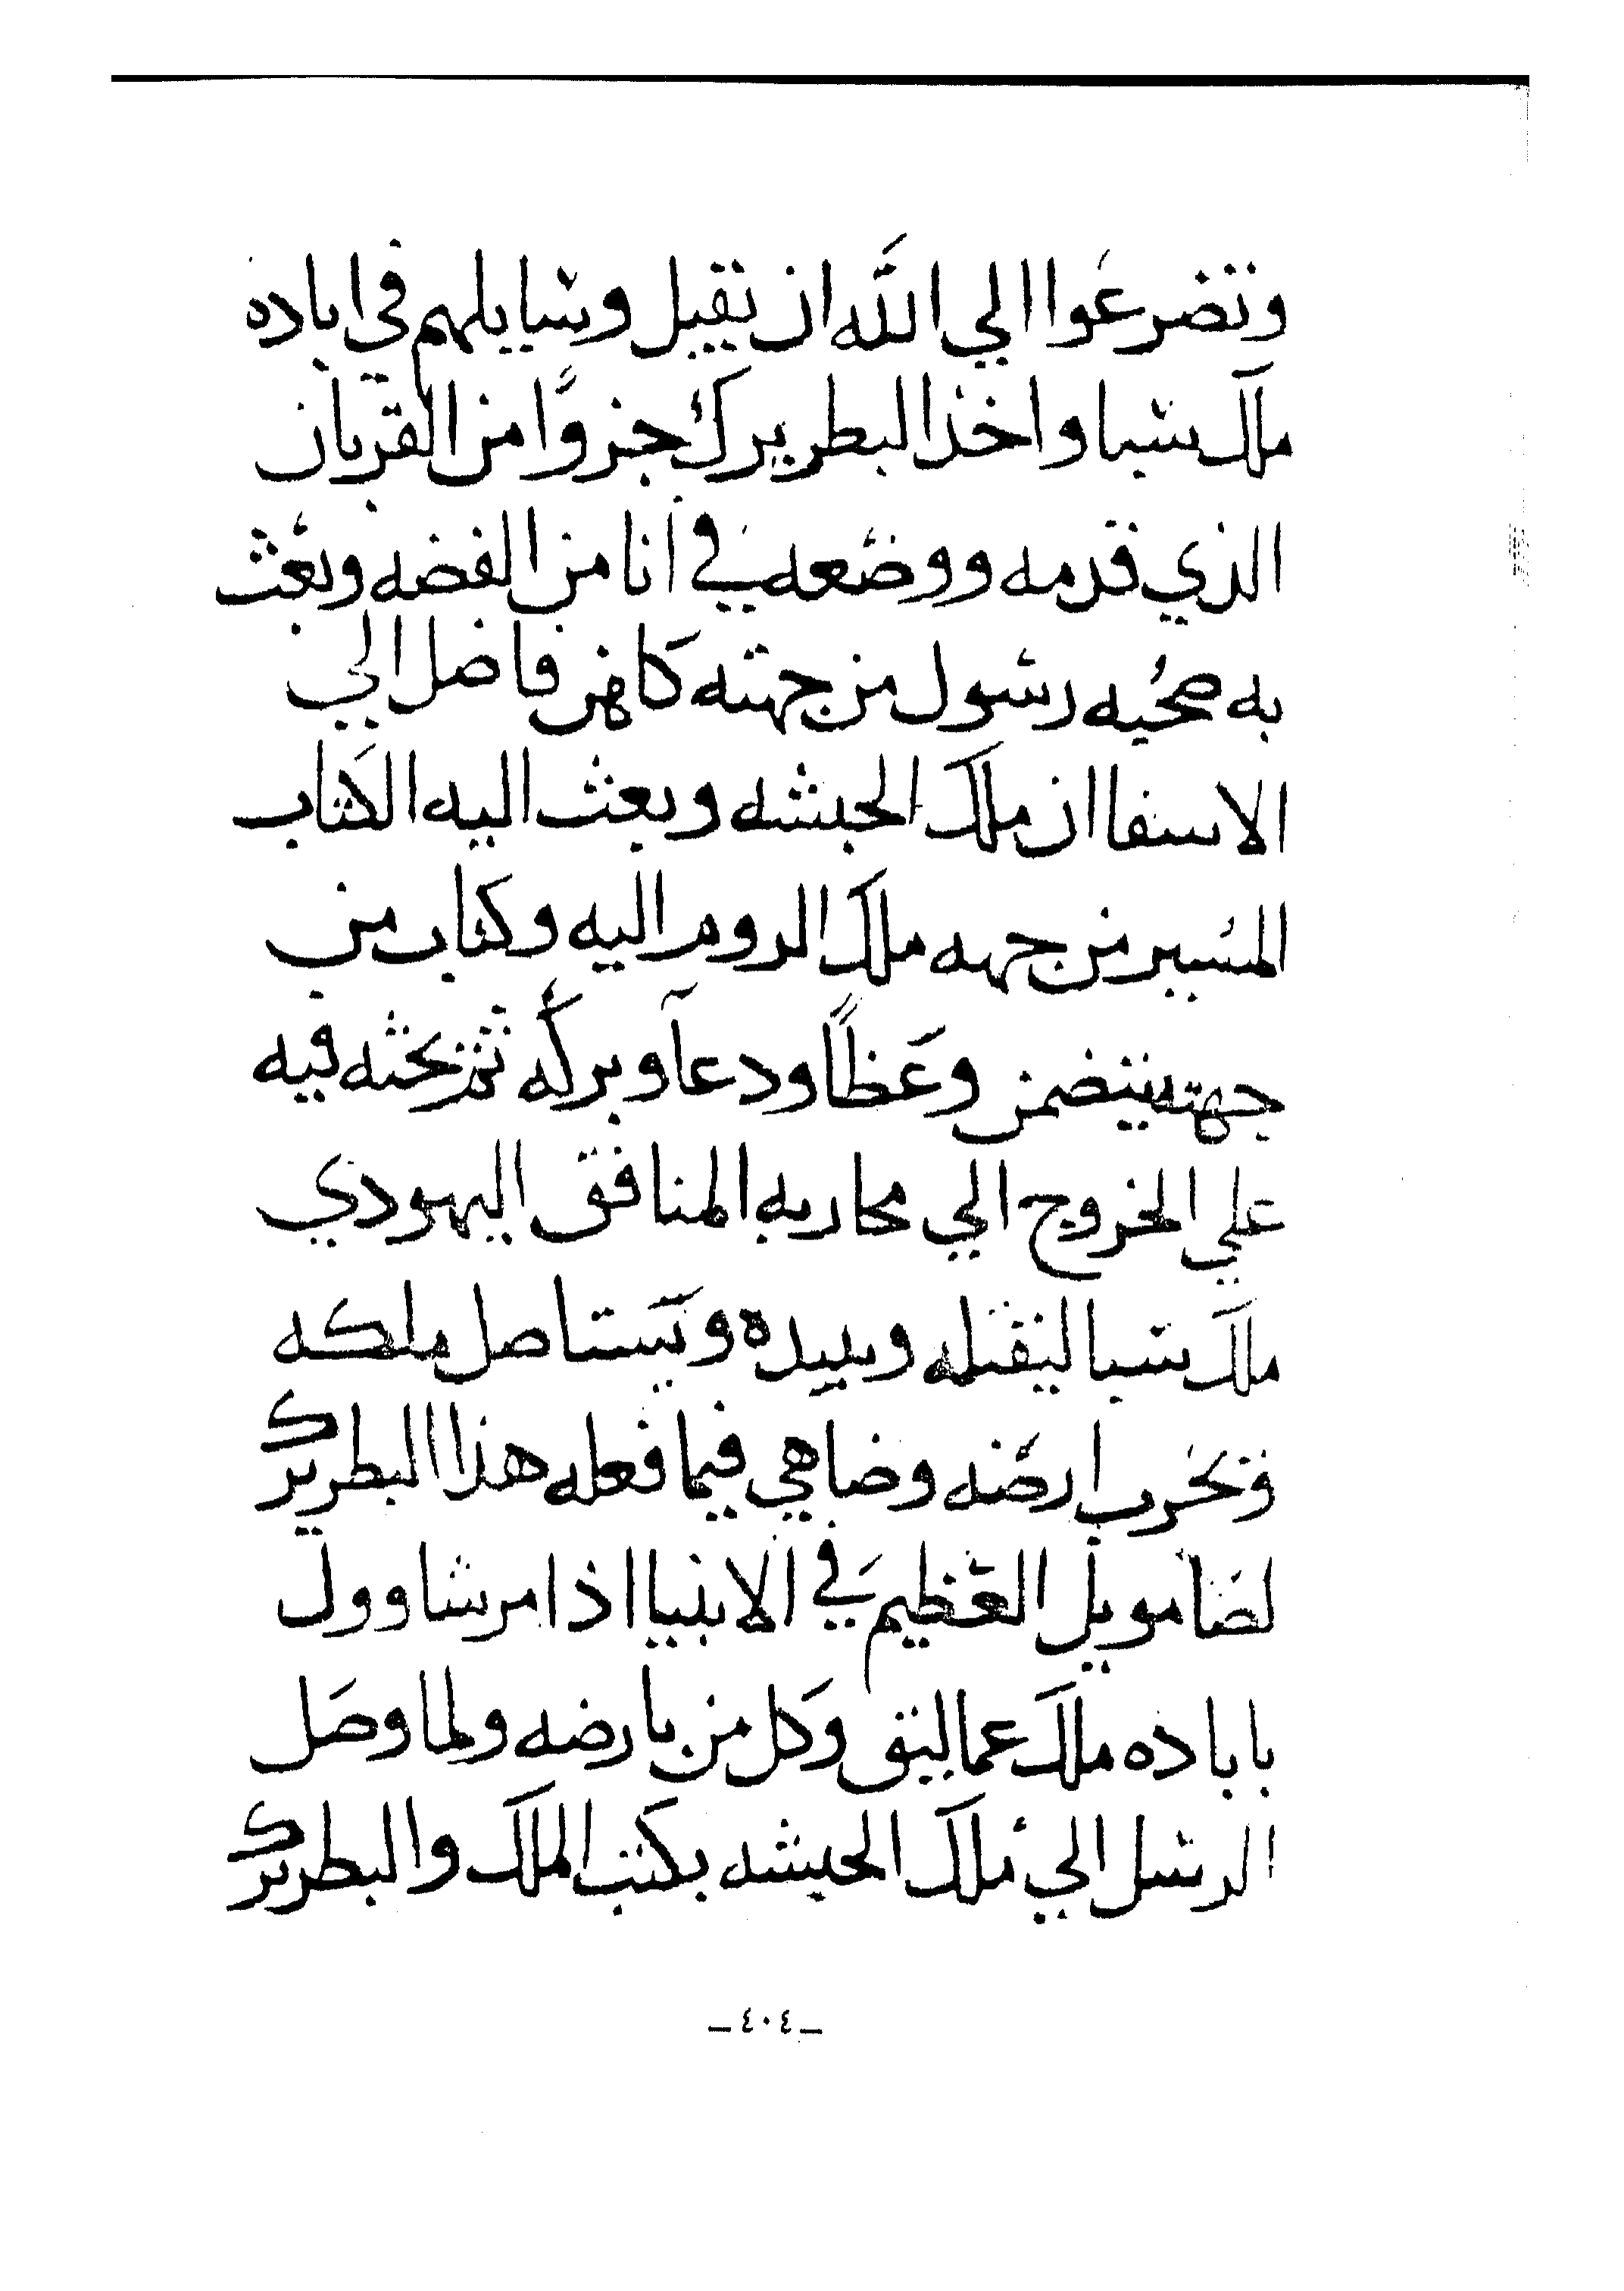 وتضرعوا الي الله ان تقبل وسايلهم في اباده
ملك سبا واخذ البطريرك جزوًا من القربان
الذي قدمه ووضعه في انا من الفضه وبعث
به صحبه رسول من جهته كاهن فاضل الي
الاسفاان ملك الحبشه وبعث اليه الكتاب
المسير من جهه ملك الروم اليه وكتاب من
جهته يتضمن وعظًا ودعآ وبركه ثم يحثه فيه
علي الخروج الي محاربه المنافق اليهودي
ملك سبا ليقتله ويبيده ويستاصل ملكه
ويخرب ارضه وضاهي فيما فعله هذا البطريرك
لصامويل العظيم في الانبيا اذ امر شاوول
باباده ملك عماليق وكل من بارضه ولما وصل
الرسل الي ملك الحبشه بكتب الملك والبطريرك
ـ٤٠٤ـ